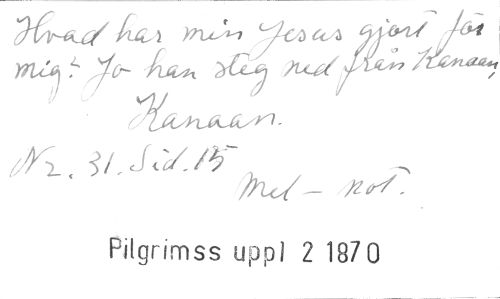 Hvad har min Jesus gjort för
mig? Jo han steg ned från Kanaan,
Kanaan.
Nr. 31. Sid. 15
Mel - not.
Pilgrimss uppl 2 1870